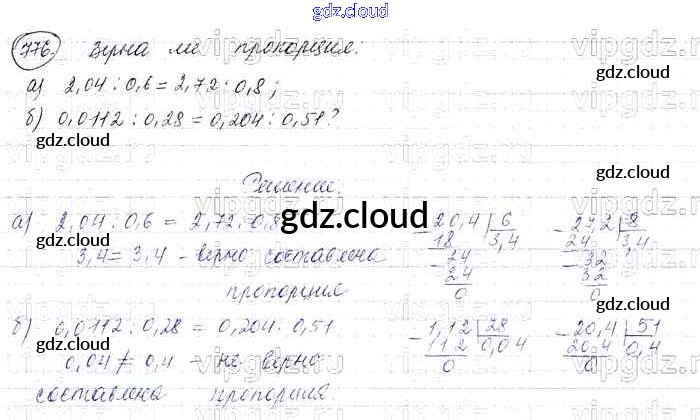 gdz.cloud
776. Верна ли пропорция:
а) 2,04 : 0,6 = 2,72 : 0,8;
б) 0,0112 : 0,28 = 0,204 : 0,51?
gdz.cloud
gdz.cloud
gdz.cloud
Решение.
gdz.cloud
а) 2,04 : 0,6 = 2,72 : 0,8
3,4 = 3,4 - верно составлена
пропорция
gdz.cloud
gdz.cloud
20,4 | 6
18 | 3,4
24
24
0
27,2 | 8
24 | 3,4
32
32
0
gdz.cloud
б) 0,0112 : 0,28 = 0,204 : 0,51
0,04 ≠ 0,4 - не верно
составлена пропорция
gdz.cloud
gdz.cloud
1,12 | 28
112 | 0,04
0
20,4 | 51
20,4 | 0,4
0
gdz.cloud